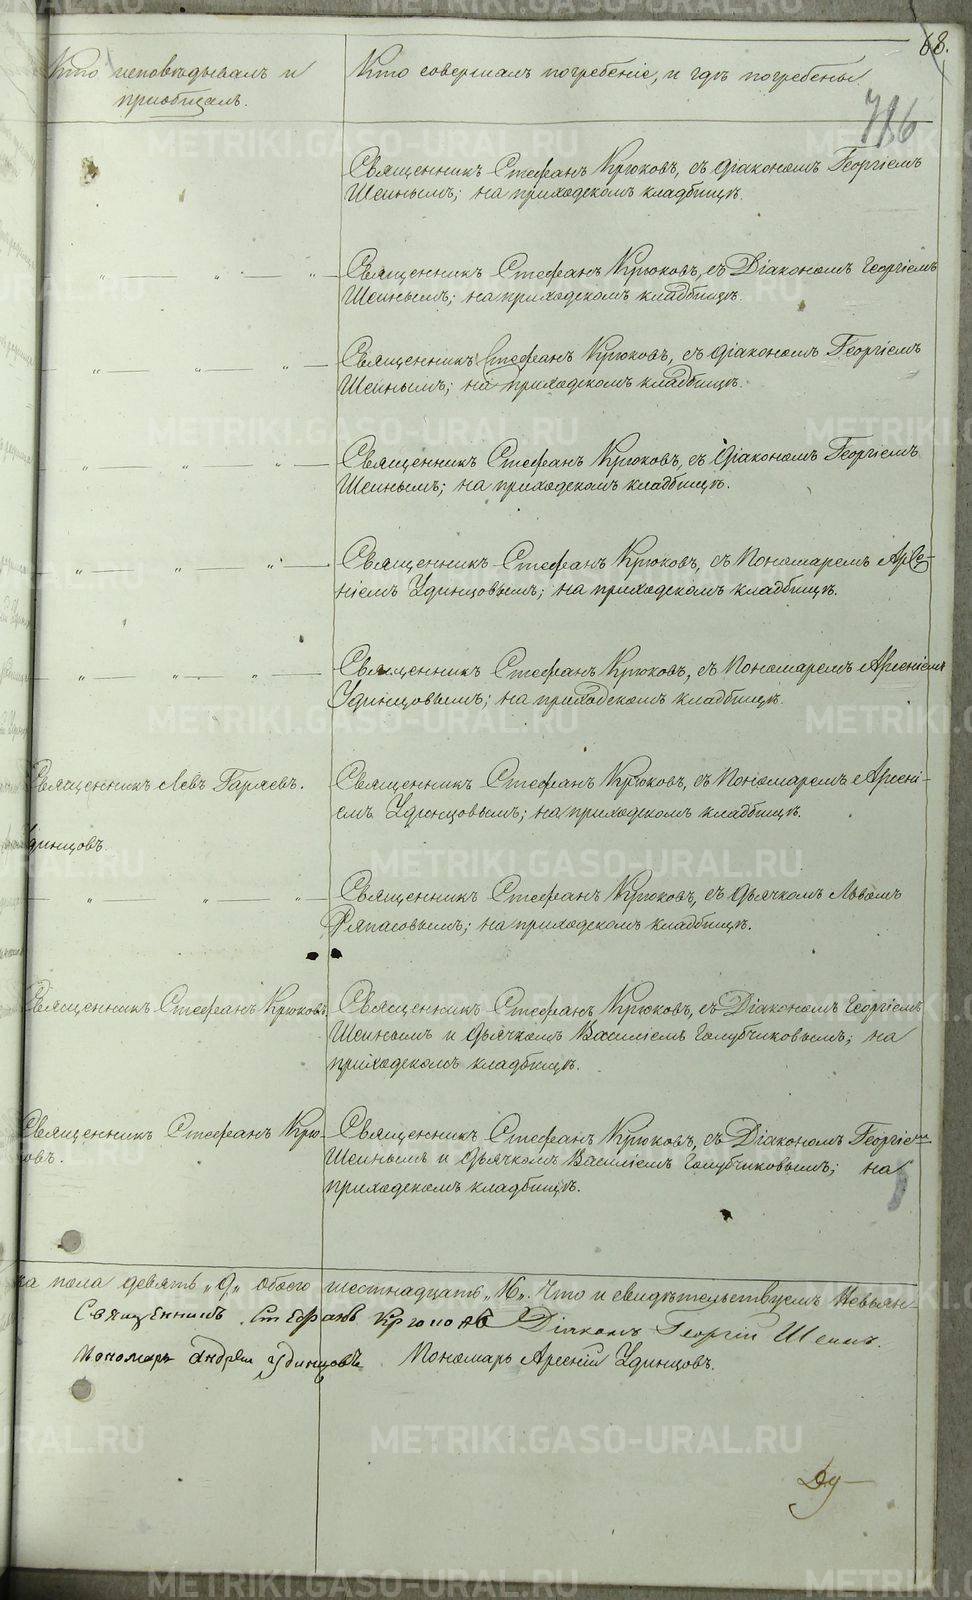 68.
Кто исповѣдывалъ и
приобщалъ.
Кто совершалъ погребеніе, и гдѣ погребены
786
Священникъ Стефанъ Крюковъ, съ діакономъ Георгіемъ
Шеинымъ; на приходскомъ кладбищѣ.
Священникъ Стефанъ Крюковъ, съ Діакономъ Георгіемъ
Шеинымъ; на приходскомъ кладбищѣ.
Священникъ Стефанъ Крюковъ, съ діакономъ Георгіемъ
Шеинымъ; на приходскомъ кладбищѣ.
Священникъ Стефанъ Крюковъ, съ Діакономъ Георгіемъ
Шеинымъ; на приходскомъ кладбищѣ.
Священникъ Стефанъ Крюковъ, съ Пономаремъ Арсе-
ніемъ Удинцовымъ; на приходскомъ кладбищѣ.
Священникъ Стефанъ Крюковъ, съ Пономаремъ Арсеніемъ
Удинцовымъ; на приходскомъ кладбищѣ.
Священникъ Левъ Гаряевъ.
Удинцовъ.
Священникъ Стефанъ Крюковъ, съ Пономаремъ Арсені-
емъ Удинцовымъ; на приходскомъ кладбищѣ.
Священникъ Стефанъ Крюковъ, съ дьячкомъ Львомъ
Ряпасовымъ; на приходскомъ кладбищѣ.
Священникъ Стефанъ Крюковъ
Священникъ Стефанъ Крюковъ, съ Діакономъ Георгіемъ
Шеинымъ и дьячкомъ Василіемъ Голубчиковымъ; на
приходскомъ кладбищѣ.
Священникъ Стефанъ Крю-
ковъ.
Священникъ Стефанъ Крюковъ, съ Діакономъ Георгіемъ
Шеинымъ и дьячкомъ Василіемъ Голубчиковымъ; на
приходскомъ кладбищѣ.
ка пола девять „9„ обоего шестнадцать „16„. Что и свидѣтельствуемъ Невьян-
Священникъ Стефанъ Крюковъ Діаконъ Георгій Шеинъ.
Пономарь Андрей Удинцовъ Пономарь Арсеній Удинцовъ.
METRIKI.GASO-URAL.RU